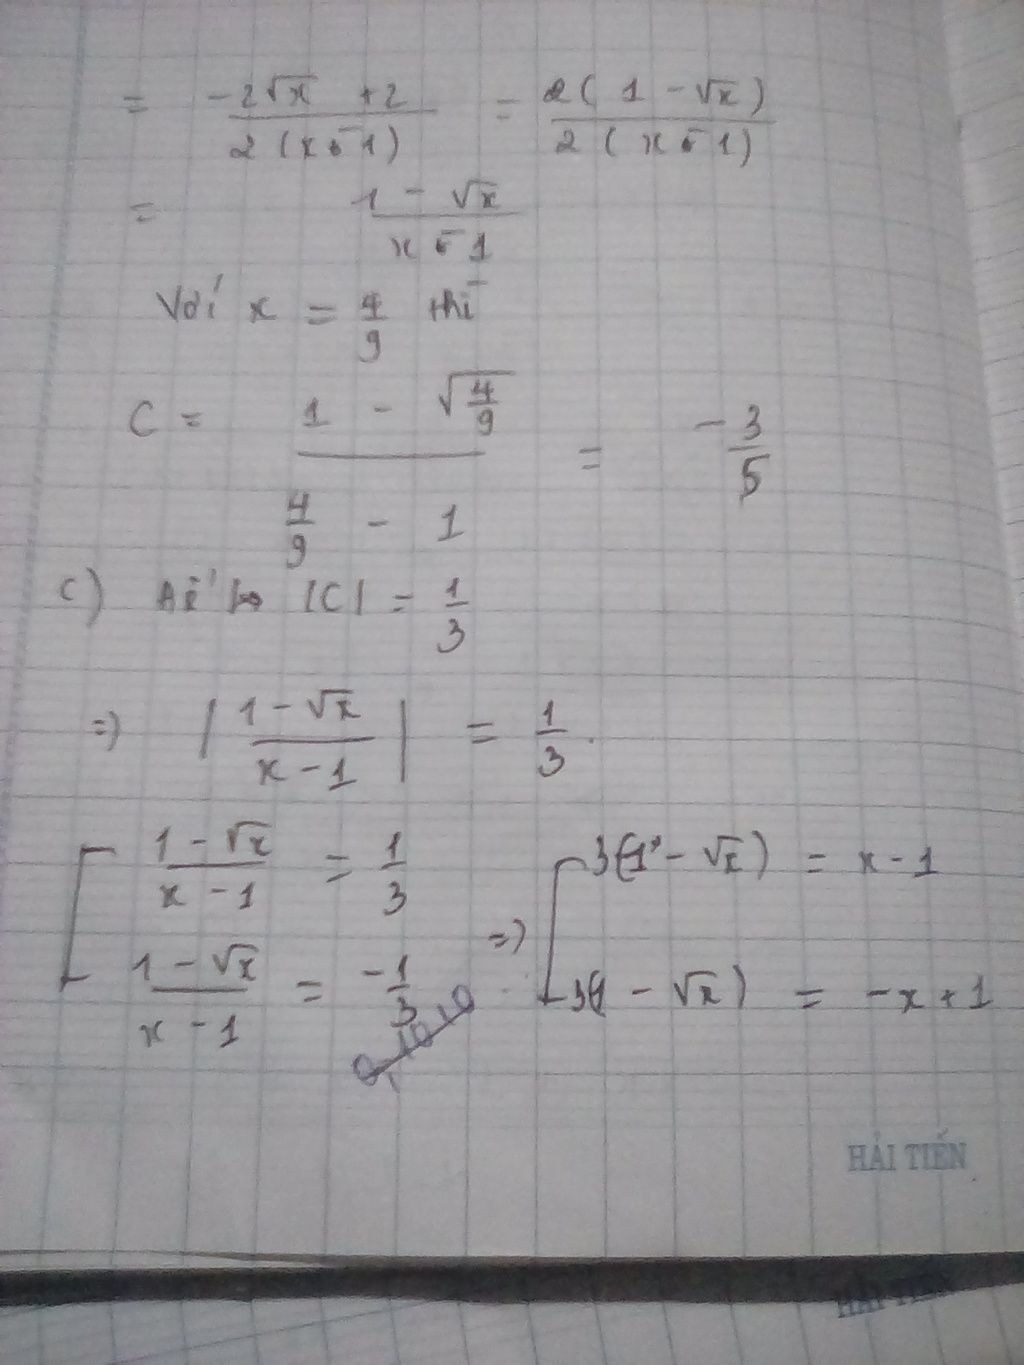 = (-2√x + 2)/(2(x - 1)) = 2(1 - √x)/(2(x - 1))
= (1 - √x)/(x - 1)
Với x = 4/9 thì
C = (1 - √(4/9))/(4/9 - 1) = -3/5
c) Để |C| = 1/3
=) |(1 - √x)/(x - 1)| = 1/3.
[ (1 - √x)/(x - 1) = 1/3 =) [ 3(1 - √x) = x - 1
(1 - √x)/(x - 1) = -1/3 3(1 - √x) = -x + 1
HẢI TIẾN
HẢI TIẾN